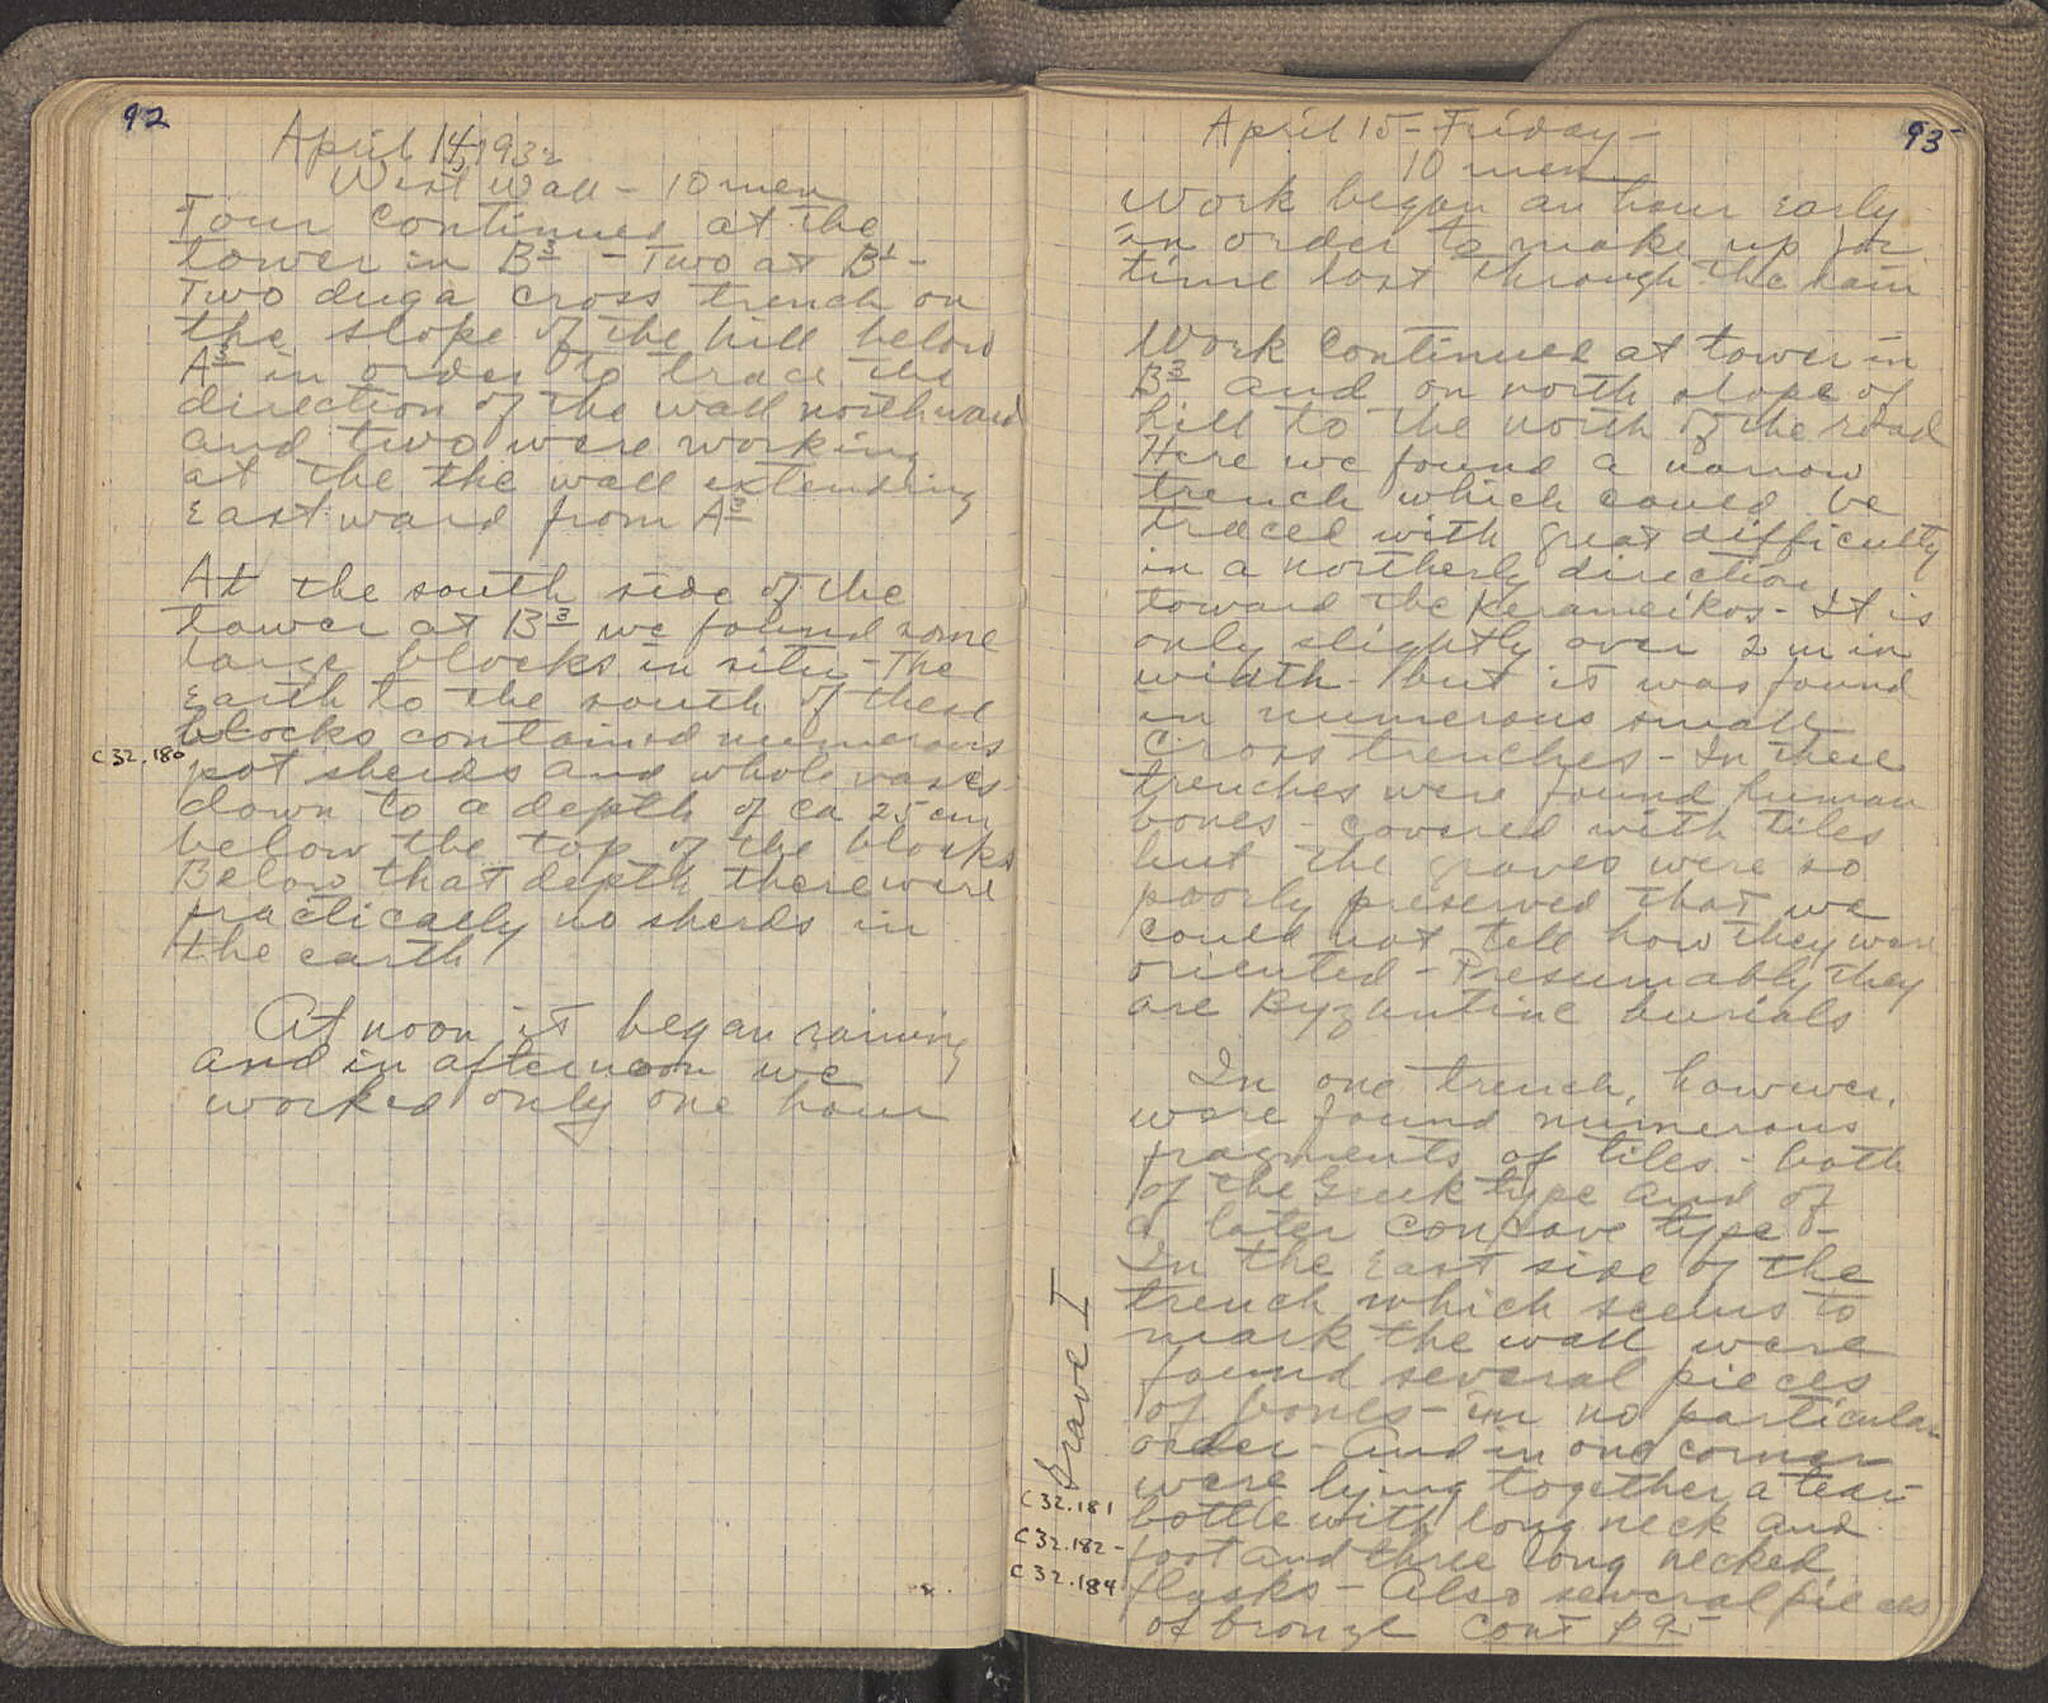 92
April 14, 1932
West Wall - 10 men
Four continued at the
tower in B3 - Two at B1 -
Two dug a cross trench on
the slope of the hill below
A3 in order to trace the
direction of the wall northward
and two were working
at the the wall extending
Eastward from A3
At the south side of the
tower at B3 we found some
large blocks in situ - The
Earth to the south of these
blocks contained numerous
C32.180
pot sherds and whole vases
down to a depth of ca 25 cm
below the top of the blocks
Below that depth there were
practically no sherds in
the earth
At noon it began raining
and in afternoon we
worked only one hour
93
April 15 - Friday -
10 men
Work began an hour early
in order to make up for
time lost through the rain
Work continued at tower in
B3 and on north slope of
hill to the north of the road
Here we found a narrow
trench which could be
traced with great difficulty
in a northerly direction
toward the Kerameikos - It is
only slightly over 2 m in
width - but it was found
in numerous small
cross trenches - In these
trenches were found human
bones - covered with tiles
but the graves were so
poorly preserved that we
could not tell how they were
oriented - Presumably they
are Byzantine burials
In one trench, however,
were found numerous
fragments of tiles - both
of the Greek type and of
a later concave type -
In the East side of the
trench which seems to
mark the wall were
found several pieces
of bones - in no particular
order - and in one corner
were lying together a tear
bottle with long neck and
foot and three long necked
flasks - Also several pieces
of bronze Cont p 95
Grave I
C32.181
C32.182-
C32.184